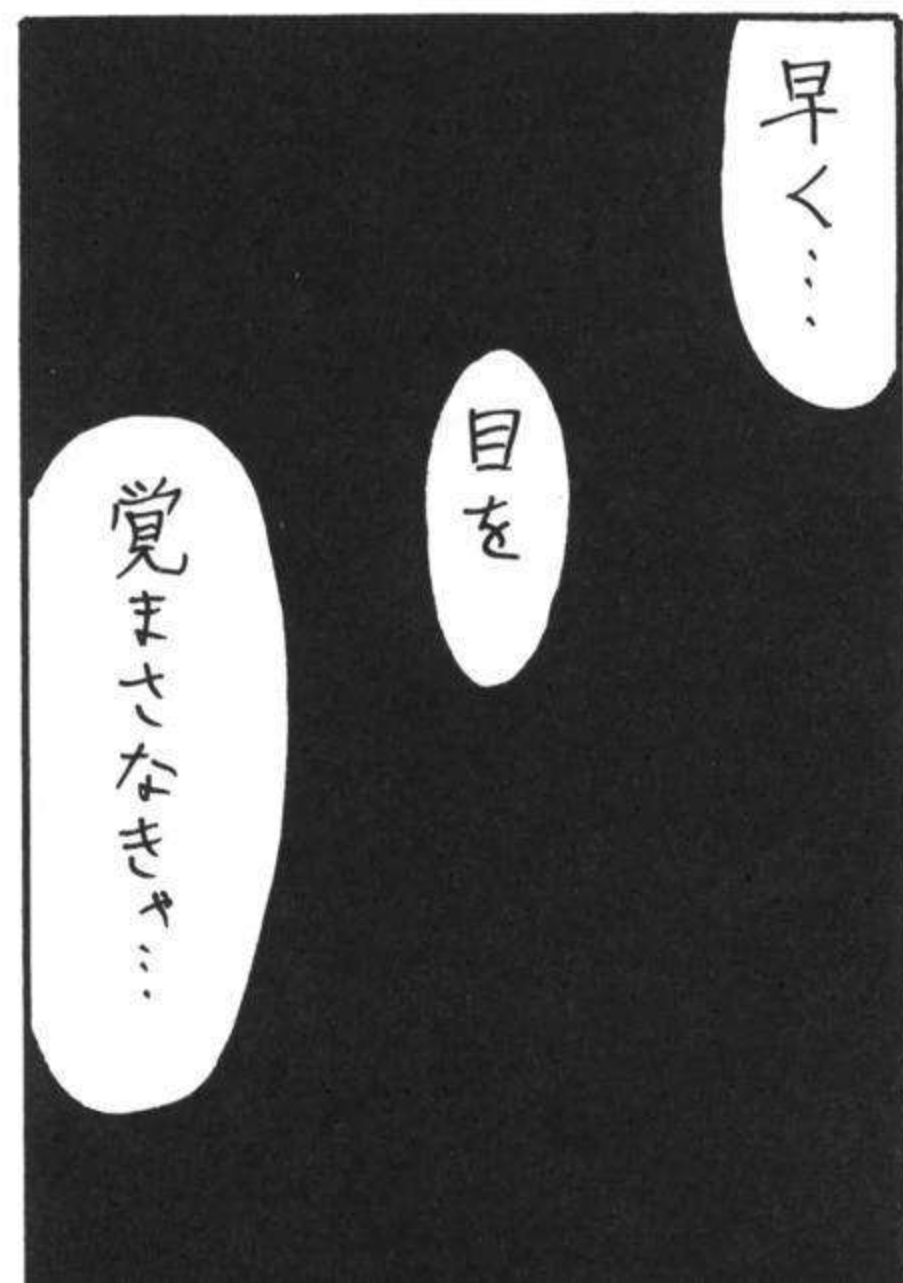 早く…
目を
覚まさなきゃ…